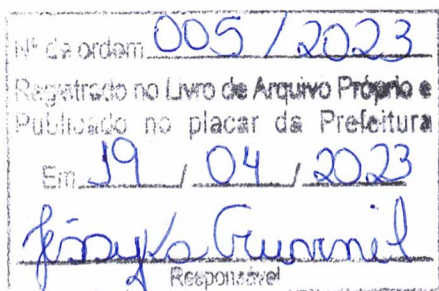 Nº de ordem 005 / 2023
Registrado no Livro de Arquivo Próprio e
Publicado no placar da Prefeitura
Em 19 / 04 / 2023
Responsável